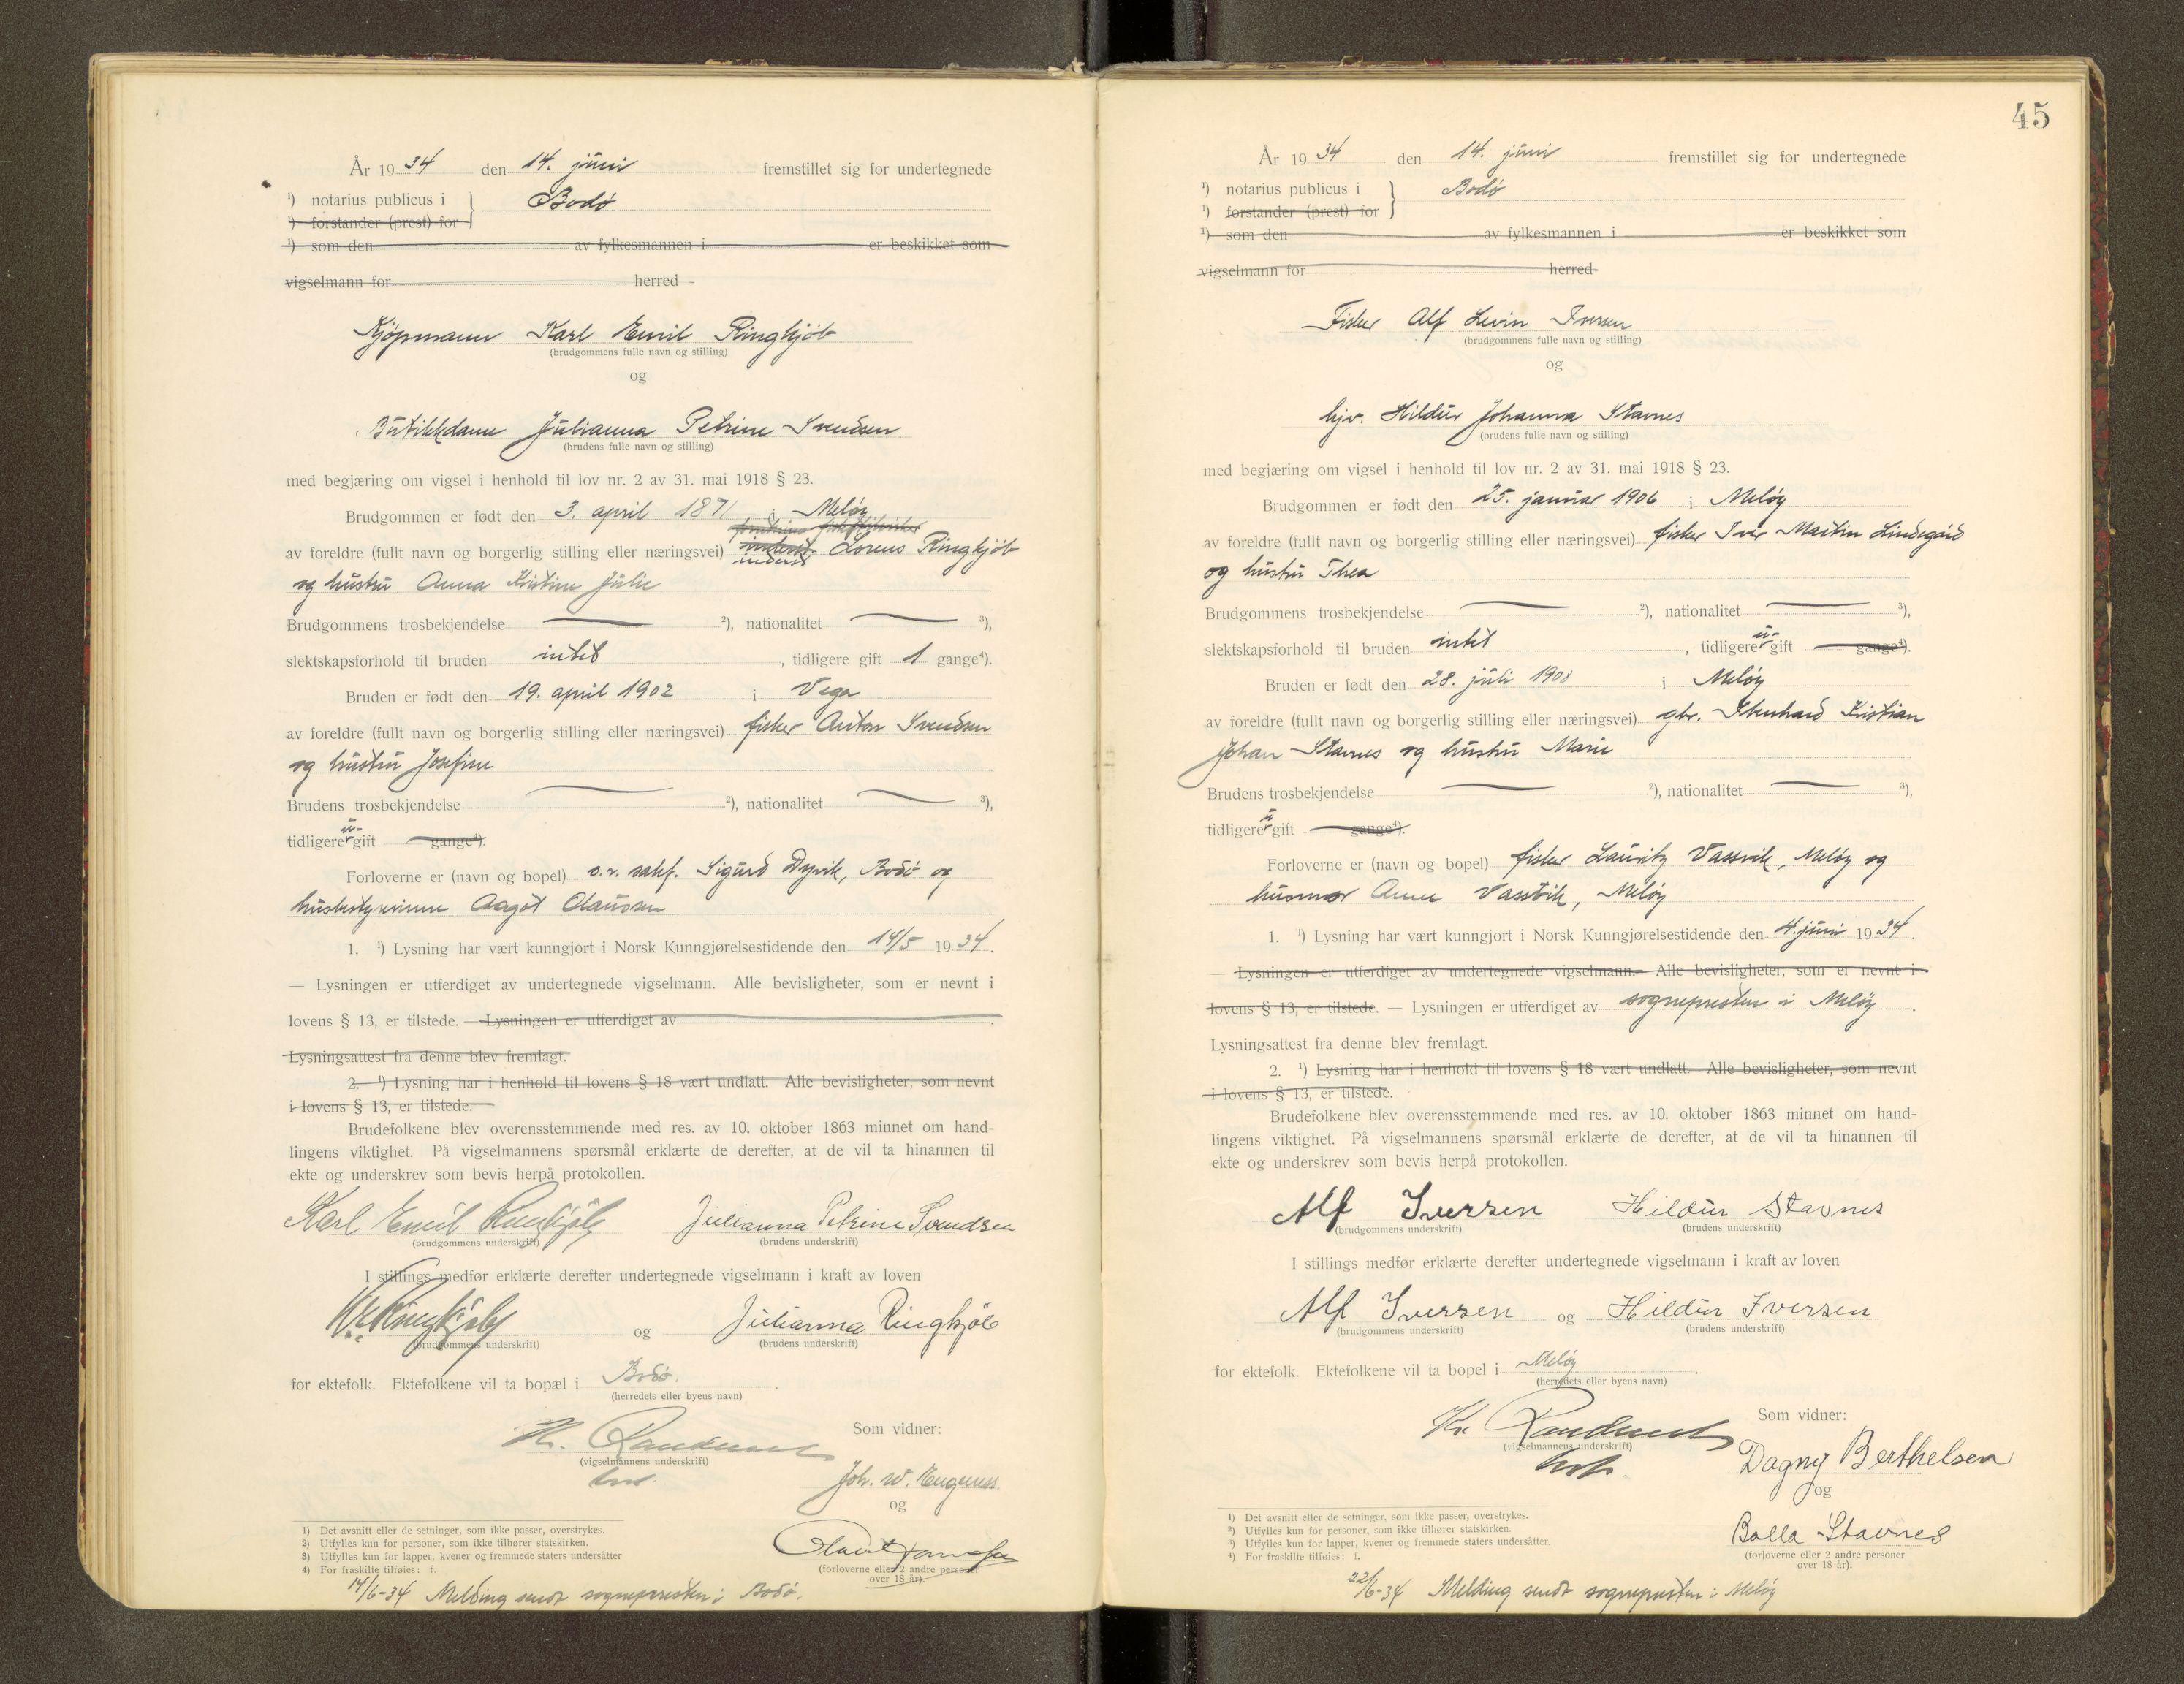 År 1934 den 14. juni fremstillet sig for undertegnede
¹) notarius publicus i Bodø
¹) forstander (prest) for
¹) som den av fylkesmannen i er beskikket som
vigselmann for herred
Kjøpmann Karl Emil Ringkjøb
(brudgommens fulle navn og stilling)
og
Butikkdame Julianna Petrine Svendsen
(brudens fulle navn og stilling)
med begjæring om vigsel i henhold til lov nr. 2 av 31. mai 1918 § 23.
Brudgommen er født den 3. april 1871 i Meløy
av foreldre (fullt navn og borgerlig stilling eller næringsvei) inderst Lorens Ringkjøb
og hustru Anna Kristine Julie
Brudgommens trosbekjendelse — ²), nationalitet — ³),
slektskapsforhold til bruden intet, tidligere gift 1 gange⁴).
Bruden er født den 19. april 1902 i Vega
av foreldre (fullt navn og borgerlig stilling eller næringsvei) fisker Anton Svendsen
og hustru Josefine
Brudens trosbekjendelse — ²), nationalitet — ³),
tidligere u-gift gange⁴).
Forloverne er (navn og bopel) o.r. sakf. Sigurd Dyrik, Bodø og
husbestyrerinne Aagot Claussen
1. ¹) Lysning har vært kunngjort i Norsk Kunngjørelsestidende den 14/5 1934.
— Lysningen er utferdiget av undertegnede vigselmann. Alle bevisligheter, som er nevnt i
lovens § 13, er tilstede. — Lysningen er utferdiget av
Lysningsattest fra denne blev fremlagt.
2. ¹) Lysning har i henhold til lovens § 18 vært undlatt. Alle bevisligheter, som nevnt
i lovens § 13, er tilstede.
Brudefolkene blev overensstemmende med res. av 10. oktober 1863 minnet om hand-
lingens viktighet. På vigselmannens spørsmål erklærte de derefter, at de vil ta hinannen til
ekte og underskrev som bevis herpå protokollen.
Karl Emil Ringkjøb Julianna Petrine Svendsen
(brudgommens underskrift) (brudens underskrift)
I stillings medfør erklærte derefter undertegnede vigselmann i kraft av loven
K. E. Ringkjøb og Julianna Ringkjøb
(brudgommens underskrift) (brudens underskrift)
for ektefolk. Ektefolkene vil ta bopæl i Bodø.
(herredets eller byens navn)
Som vidner:
(vigselmannens underskrift)
Joh. W.
og
(forloverne eller 2 andre personer
over 18 år).
1) Det avsnitt eller de setninger, som ikke passer, overstrykes.
2) Utfylles kun for personer, som ikke tilhører statskirken.
3) Utfylles kun for lapper, kvener og fremmede staters undersåtter
4) For fraskilte tilføies: f.
14/6-34 Melding sendt sognepresten i Bodø.
45
År 1934 den 14. juni fremstillet sig for undertegnede
¹) notarius publicus i Bodø
¹) forstander (prest) for
¹) som den av fylkesmannen i er beskikket som
vigselmann for herred
Fisker Alf Levin Iversen
(brudgommens fulle navn og stilling)
og
hjv. Hildur Johanna Stavnes
(brudens fulle navn og stilling)
med begjæring om vigsel i henhold til lov nr. 2 av 31. mai 1918 § 23.
Brudgommen er født den 25. januar 1906 i Meløy
av foreldre (fullt navn og borgerlig stilling eller næringsvei) fisker Iver Martin Lindegård
og hustru Thea
Brudgommens trosbekjendelse — ²), nationalitet — ³),
slektskapsforhold til bruden intet, tidligere u-gift gange⁴).
Bruden er født den 28. juli 1908 i Meløy
av foreldre (fullt navn og borgerlig stilling eller næringsvei) gbr. Kristian
Johan Stavnes og hustru Marie
Brudens trosbekjendelse — ²), nationalitet — ³),
tidligere u-gift gange⁴).
Forloverne er (navn og bopel) fisker Lauritz Vassvik, Meløy og
husmor Anne Vassvik, Meløy
1. ¹) Lysning har vært kunngjort i Norsk Kunngjørelsestidende den 4. juni 1934.
— Lysningen er utferdiget av undertegnede vigselmann. — Alle bevisligheter, som er nevnt i
lovens § 13, er tilstede. — Lysningen er utferdiget av sognepresten i Meløy.
Lysningsattest fra denne blev fremlagt.
2. ¹) Lysning har i henhold til lovens § 18 vært undlatt. Alle bevisligheter, som nevnt
i lovens § 13, er tilstede.
Brudefolkene blev overensstemmende med res. av 10. oktober 1863 minnet om hand-
lingens viktighet. På vigselmannens spørsmål erklærte de derefter, at de vil ta hinannen til
ekte og underskrev som bevis herpå protokollen.
Alf Iversen Hildur Stavnes
(brudgommens underskrift) (brudens underskrift)
I stillings medfør erklærte derefter undertegnede vigselmann i kraft av loven
Alf Iversen og Hildur Iversen
(brudgommens underskrift) (brudens underskrift)
for ektefolk. Ektefolkene vil ta bopel i Meløy.
(herredets eller byens navn)
Som vidner:
(vigselmannens underskrift)
Dagny Berthelsen
og
Balla Stavnes
(forloverne eller 2 andre personer
over 18 år).
¹) Det avsnitt eller de setninger, som ikke passer, overstrykes.
²) Utfylles kun for personer, som ikke tilhører statskirken.
³) Utfylles kun for lapper, kvener og fremmede staters undersåtter.
⁴) For fraskilte tilføies: f.
22/6-34 Melding sendt sognepresten i Meløy